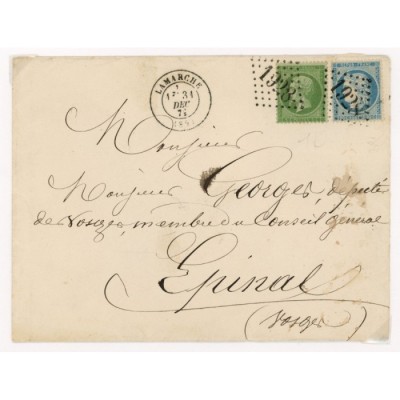 LAMARCHE
31
DEC
1928
Monsieur
Monsieur Georges, député
de Vosges, membre du Conseil général
Epinal
(Vosges)